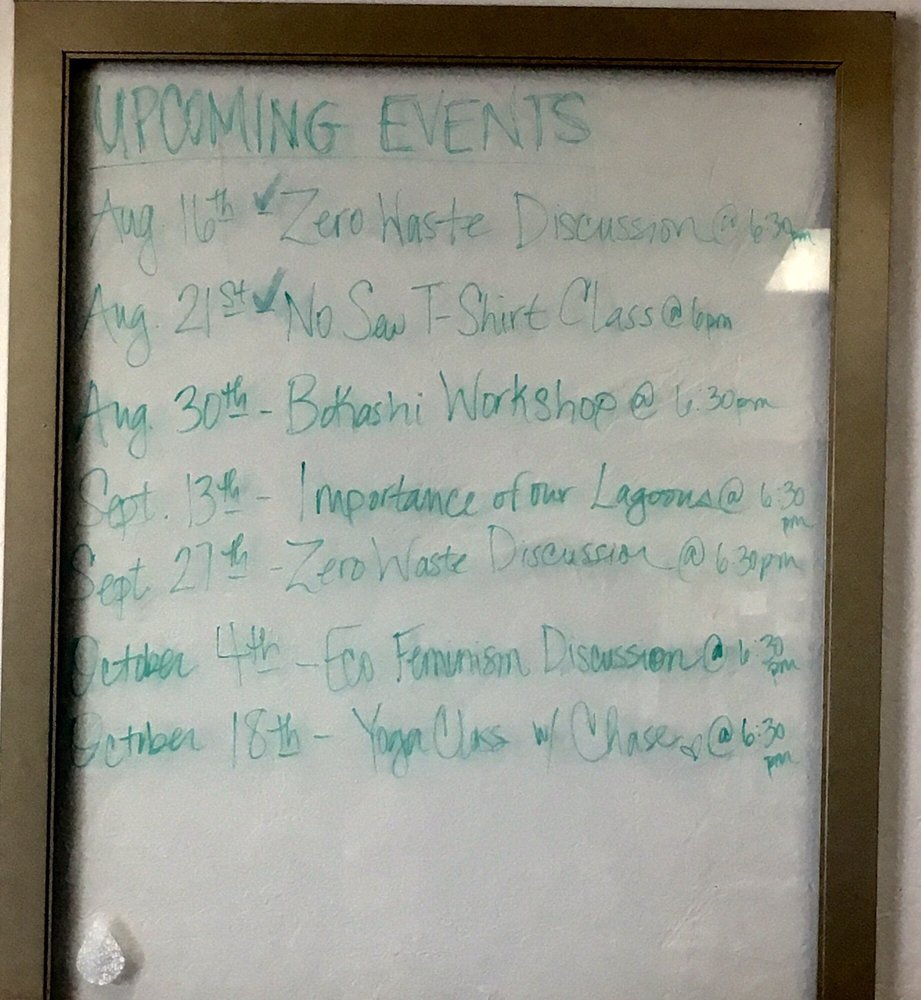 UPCOMING EVENTS
Aug 16th ✓ - Zero Waste Discussion @ 6:30pm
Aug. 21st ✓ No Sew T-Shirt Class @ 6pm
Aug. 30th - Bokashi Workshop @ 6:30pm
Sept. 13th - Importance of our Lagoons @ 6:30 pm
Sept 27th - Zero Waste Discussion @ 6:30pm
October 4th - Eco Feminism Discussion @ 6:30 pm
October 18th - Yoga Class w/ Chase ♡ @ 6:30 pm